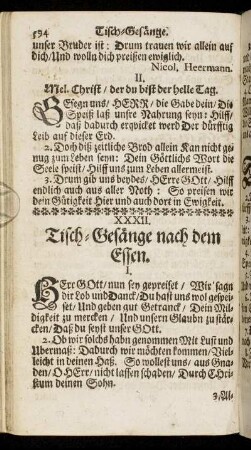 594 Tisch-Gesänge.
unser Bruder ist: Drum trauen wir allein auf
dich/Und wolln dich preisen ewiglich.
Nicol, Heermann.
II.
Mel. Christ / der du bist der helle Tag.
GEsegn uns/ HERR/ die Gabe dein/ Die
Speiß laß unsre Nahrung seyn: Hilff/
daß dadurch erqvicket werd Der dürfftig
Leib auf dieser Erd.
2. Doch diß zeitliche Brod allein Kan nicht ge-
nug zum Leben seyn: Dein Göttlichs Wort die
Seele speist/ Hilff uns zum Leben allermeist.
3. Drum gib uns beydes/ HErre GOtt/ Hilff
endlich auch aus aller Noth: So preisen wir
dein Gütigkeit Hier und auch dort in Ewigkeit.
XXXII.
Tisch-Gesänge nach dem
Essen.
I.
HErr GOtt/ nun sey gepreiset / Wir sagn
dir Lob und Danck/ Du hast uns wol gespei-
set/ Und geben gut Getranck / Dein Mil-
digkeit zu mercken / Und unsern Glaubn zu stär-
cken/ Daß du seyst unser GOtt.
2. Ob wir solchs habn genommen Mit Lust und
Ubermaß: Dadurch wir möchten kommen/ Viel-
leicht in deinen Haß. So wollest uns/ aus Gna-
den/ O HErr/ nicht lassen schaden/ Durch Chri-
stum deinen Sohn.
3. Al-